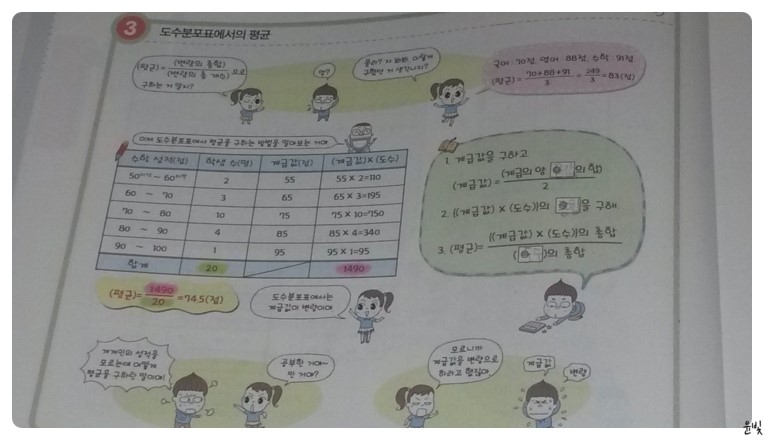 3 도수분포표에서의 평균
(평균)= (변량의 총합) / (변량의 총 개수) 으로
구하는 거 알지?
응?
몰라? 자 봐봐, 이렇게
구했던 거 생각나지?
국어 70점, 영어 88점, 수학 91점
(평균)= 70+88+91 / 3 = 249 / 3 =83(점)
이제 도수분포표에서 평균을 구하는 방법을 알아보는 거야
수학 성적(점) 학생 수(명) 계급값(점) (계급값)×(도수)
50이상 ~ 60미만 2 55 55×2=110
60 ~ 70 3 65 65×3=195
70 ~ 80 10 75 75×10=750
80 ~ 90 4 85 85×4=340
90 ~ 100 1 95 95×1=95
합계 20 1490
(평균)= 1490 / 20 =74.5(점)
도수분포표에서는
계급값이 변량이야
1. 계급값을 구하고
(계급값)= (계급의 양 의 합) / 2
2. {(계급값)×(도수)}의 을 구해
3. (평균)= {(계급값)×(도수)}의 총합 / ( )의 총합
개개인의 성적을
모르는데 어떻게
평균을 구하란 말이야!
공부한 거야~
만 거야?
모르니까
계급값을 변량으로
하라고 했잖아
계급값
변량
윤빛